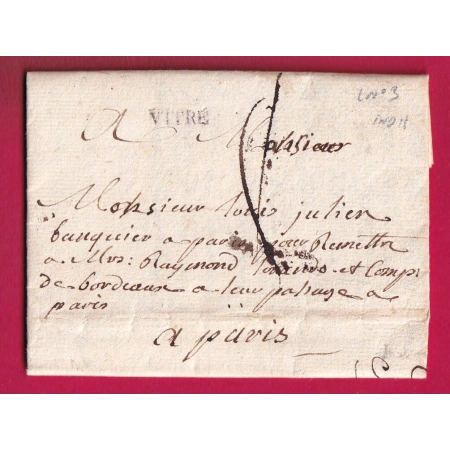 VITRÉ
A Monsieur
Monsieur louis julien
banquier a paris pour Remettre
a Mrs: Raymond et Comp:
de bordeaux a leur passage a
paris
a paris